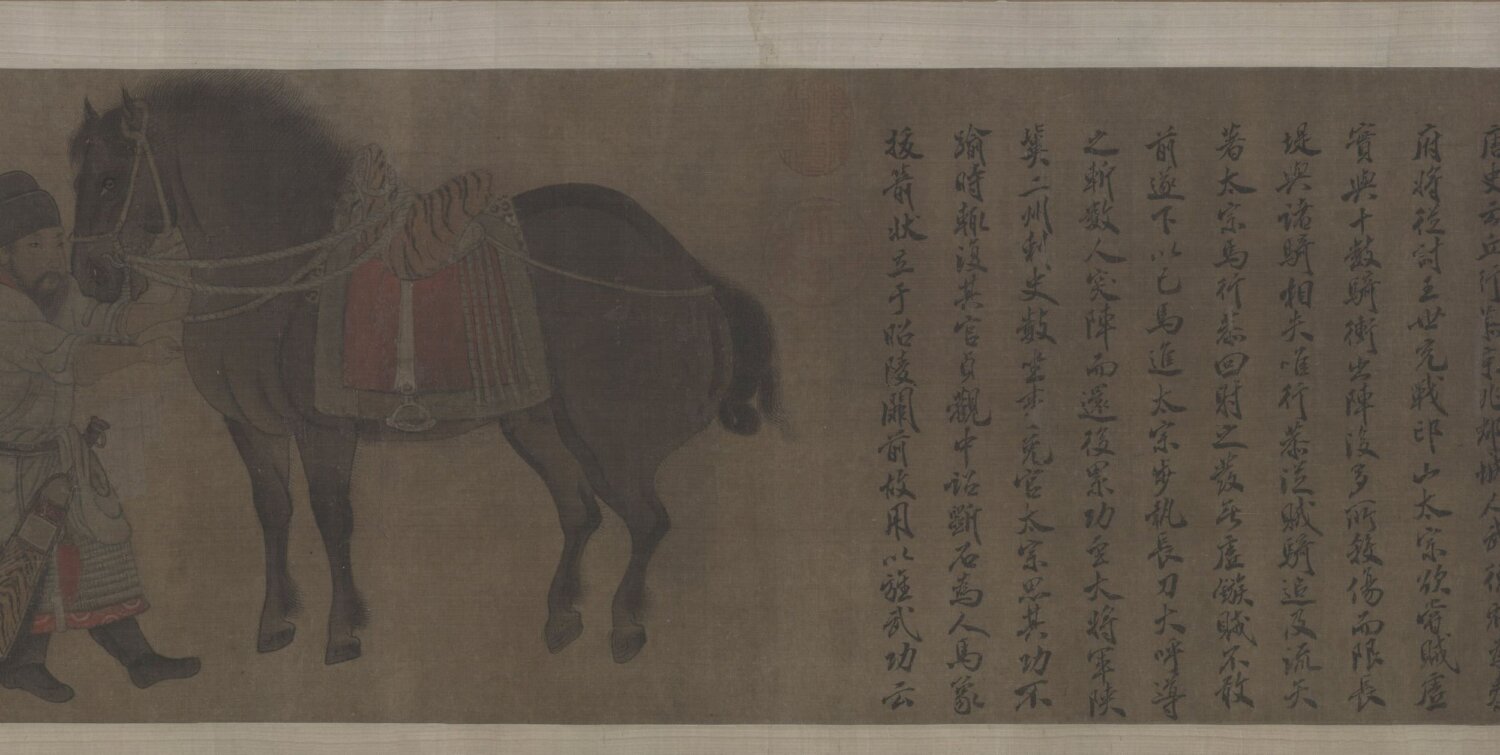 唐史云丘行恭京兆郡城人武德
府將從討王世充戰邙山太宗欲嘗賊虛
實與十數騎衝出陣後多所殺傷而限長
堤與諸騎相失唯行恭從賊騎追及流矢
著太宗馬行恭回射之發无虛鏃賊不敢
前遂下以己馬進太宗步執長刀大呼導
之斬數人突陣而還後累功至大將軍陝
冀二州刺史數坐事免官太宗思其功不
踰時輒復其官貞觀中詔斲石為人馬象
拔箭狀立于昭陵闕前故用以旌武功云